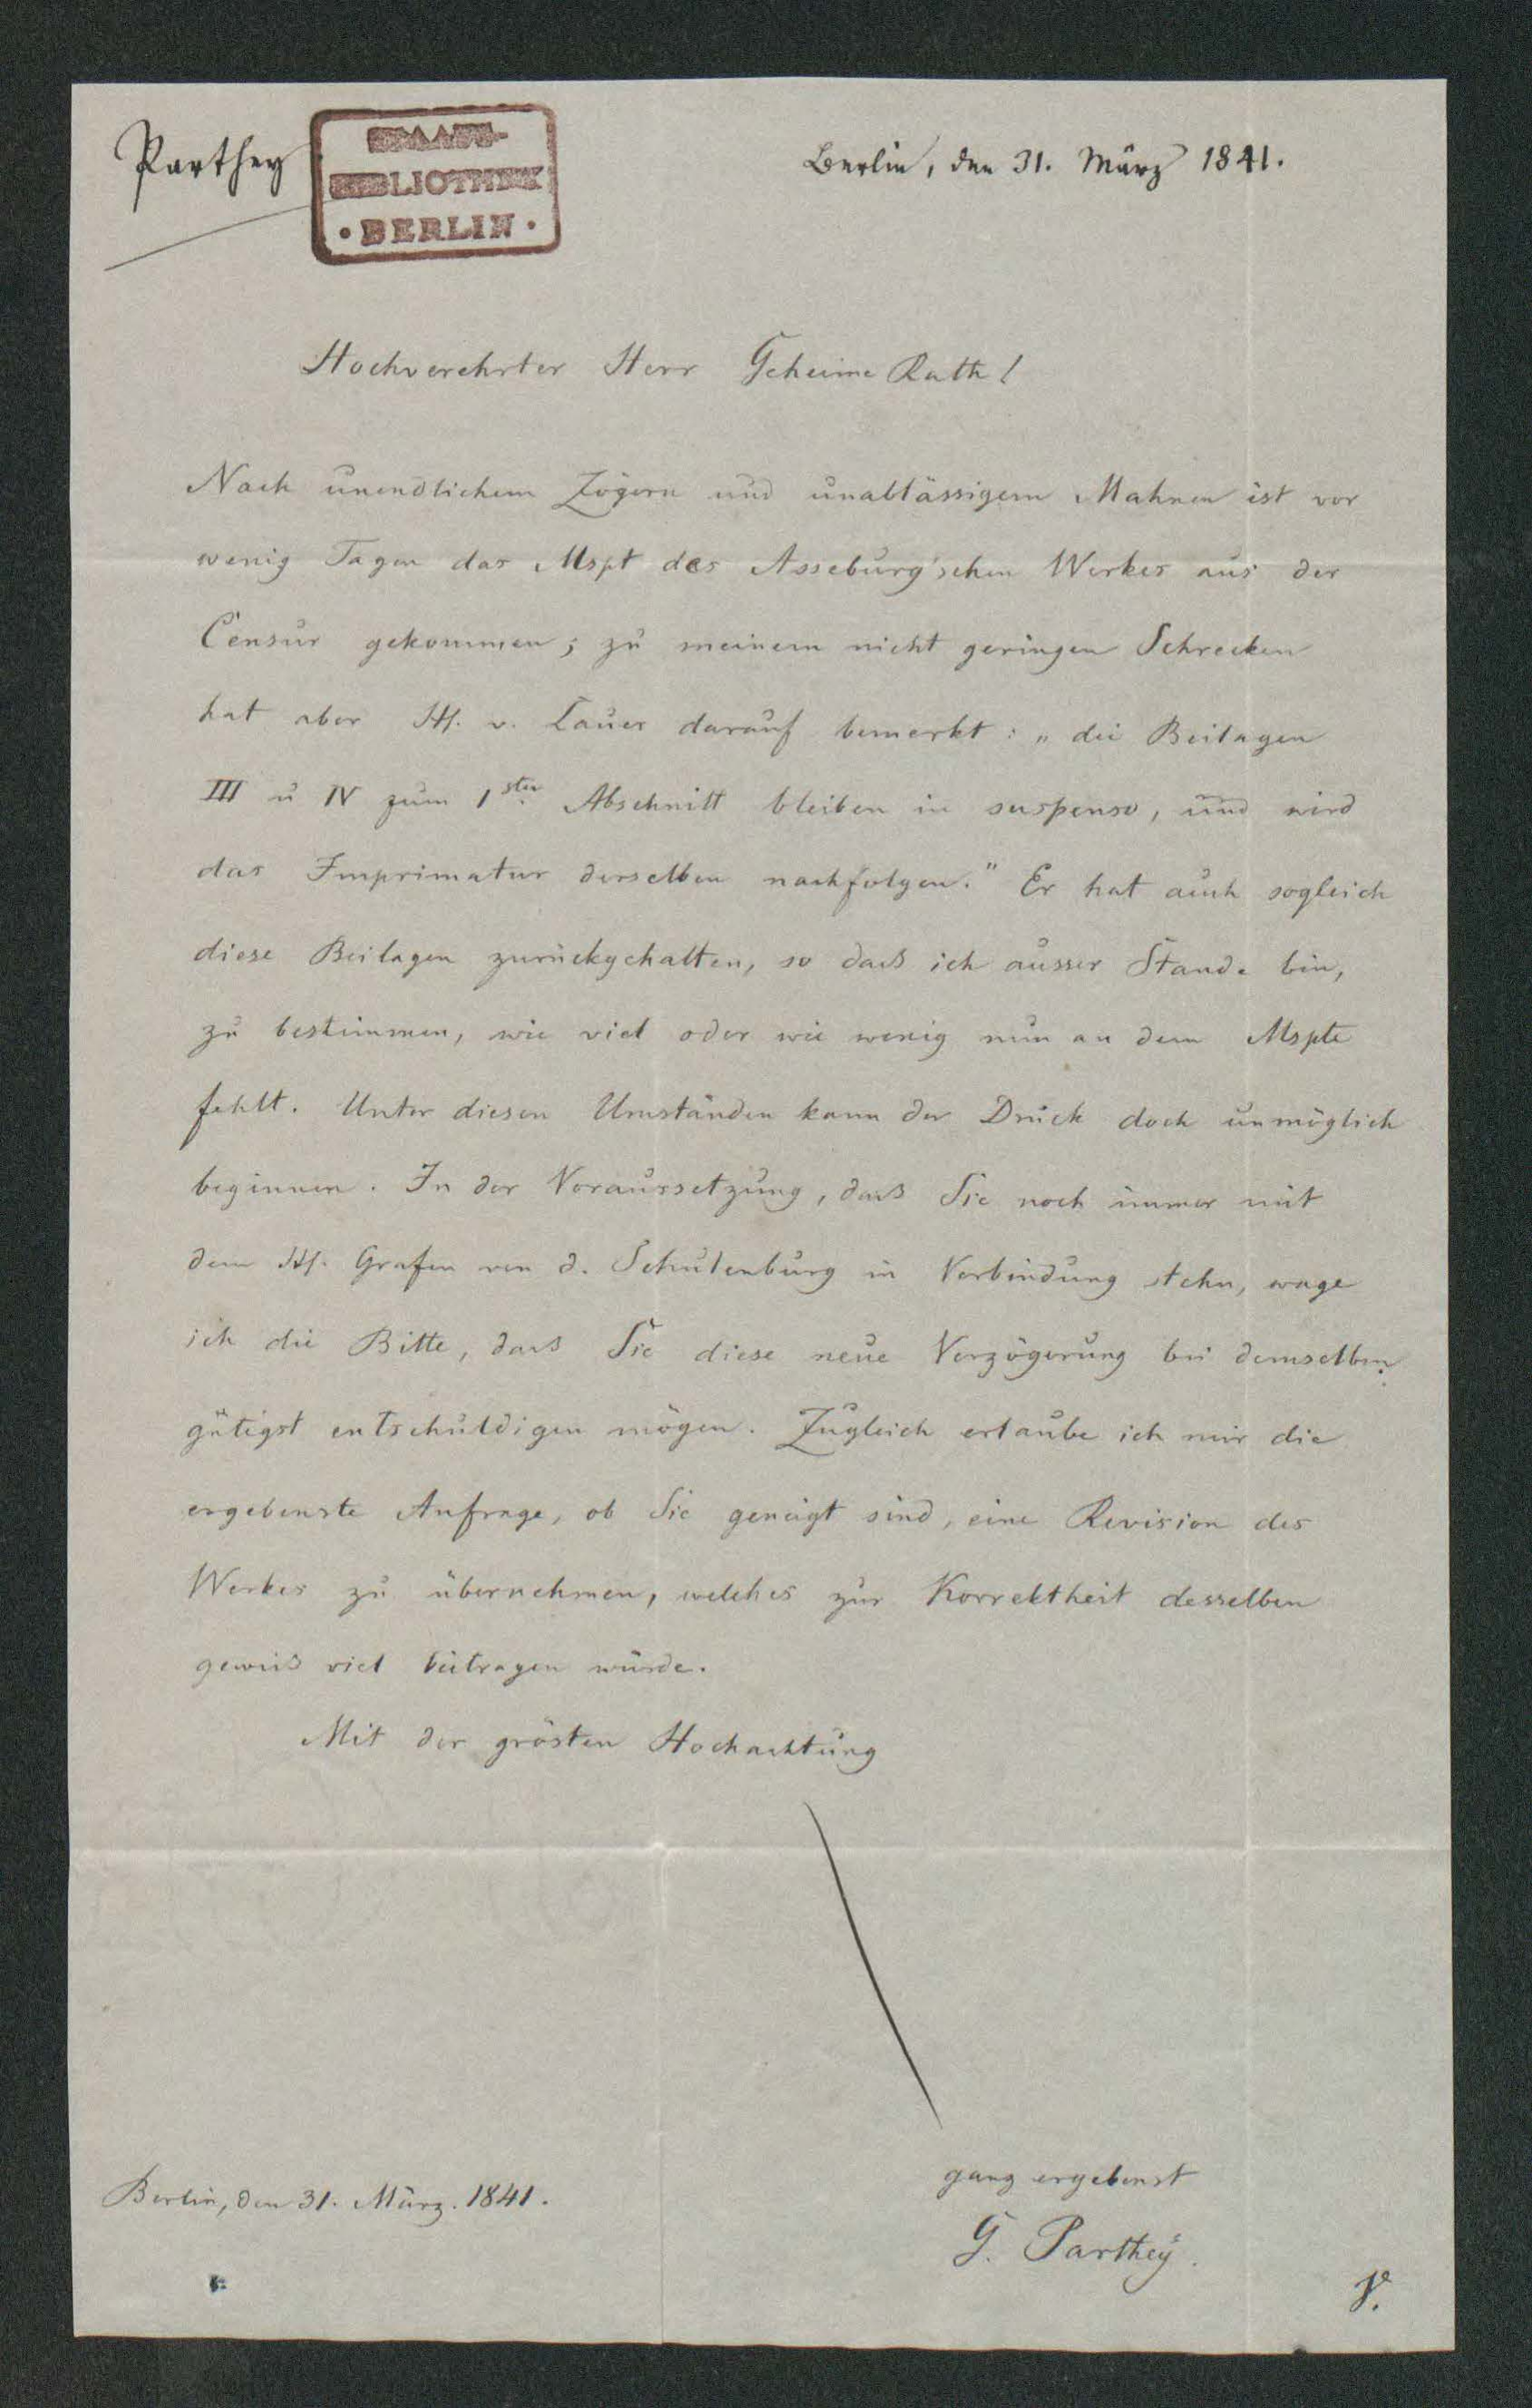 Parthey
STAATS-
BIBLIOTHEK
• BERLIN •
Berlin, den 31. März 1841.
Hochverehrter Herr Geheime Rath!
Nach unendlichem Zögern und unablässigem Mahnen ist vor
wenig Tagen das Mspt des Asseburg'schen Werkes aus der
Censur gekommen; zu meinem nicht geringen Schrecken
hat aber H. v. Lauer darauf bemerkt: „die Beilagen
III u IV zum 1sten Abschnitt bleiben in suspenso, und wird
das Imprimatur derselben nachfolgen." Er hat auch sogleich
diese Beilagen zurückgehalten, so daß ich ausser Stande bin,
zu bestimmen, wie viel oder wie wenig nun an dem Mspte
fehlt. Unter diesen Umständen kann der Druck doch unmöglich
beginnen. In der Voraussetzung, daß Sie noch immer mit
dem H. Grafen von d. Schulenburg in Verbindung stehn, wage
ich die Bitte, daß Sie diese neue Verzögerung bei demselben
gütigst entschuldigen mögen. Zugleich erlaube ich mir die
ergebenste Anfrage, ob Sie geneigt sind, eine Revision des
Werkes zu übernehmen, welches zur Korrektheit desselben
gewiß viel beitragen würde.
Mit der grösten Hochachtung
ganz ergebenst
Berlin, den 31. März. 1841.
G. Parthey.